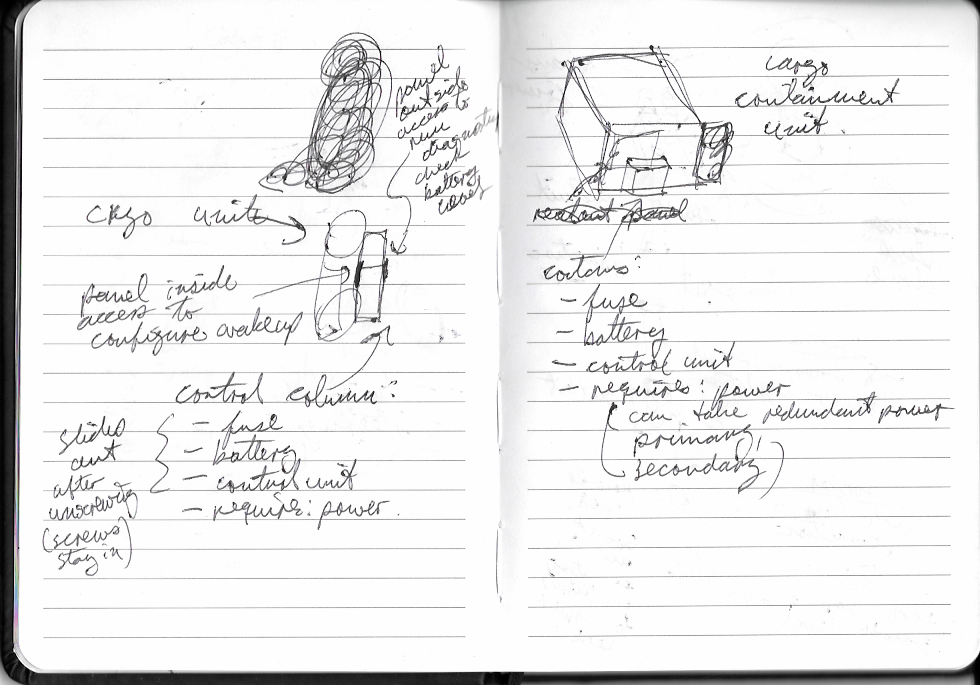 panel
outside
access to
run
diagnostics
check
battery
cryo unit
panel inside
access to
configure wakeup
control column:
- fuse
- battery
- control unit
- require: power.
slides
out
after
unscrewing
(screws
stay in)
cargo
containment
unit.
panel
contains:
- fuse
- battery
- control unit
- requires: power
(can take redundant power
primary,
secondary)